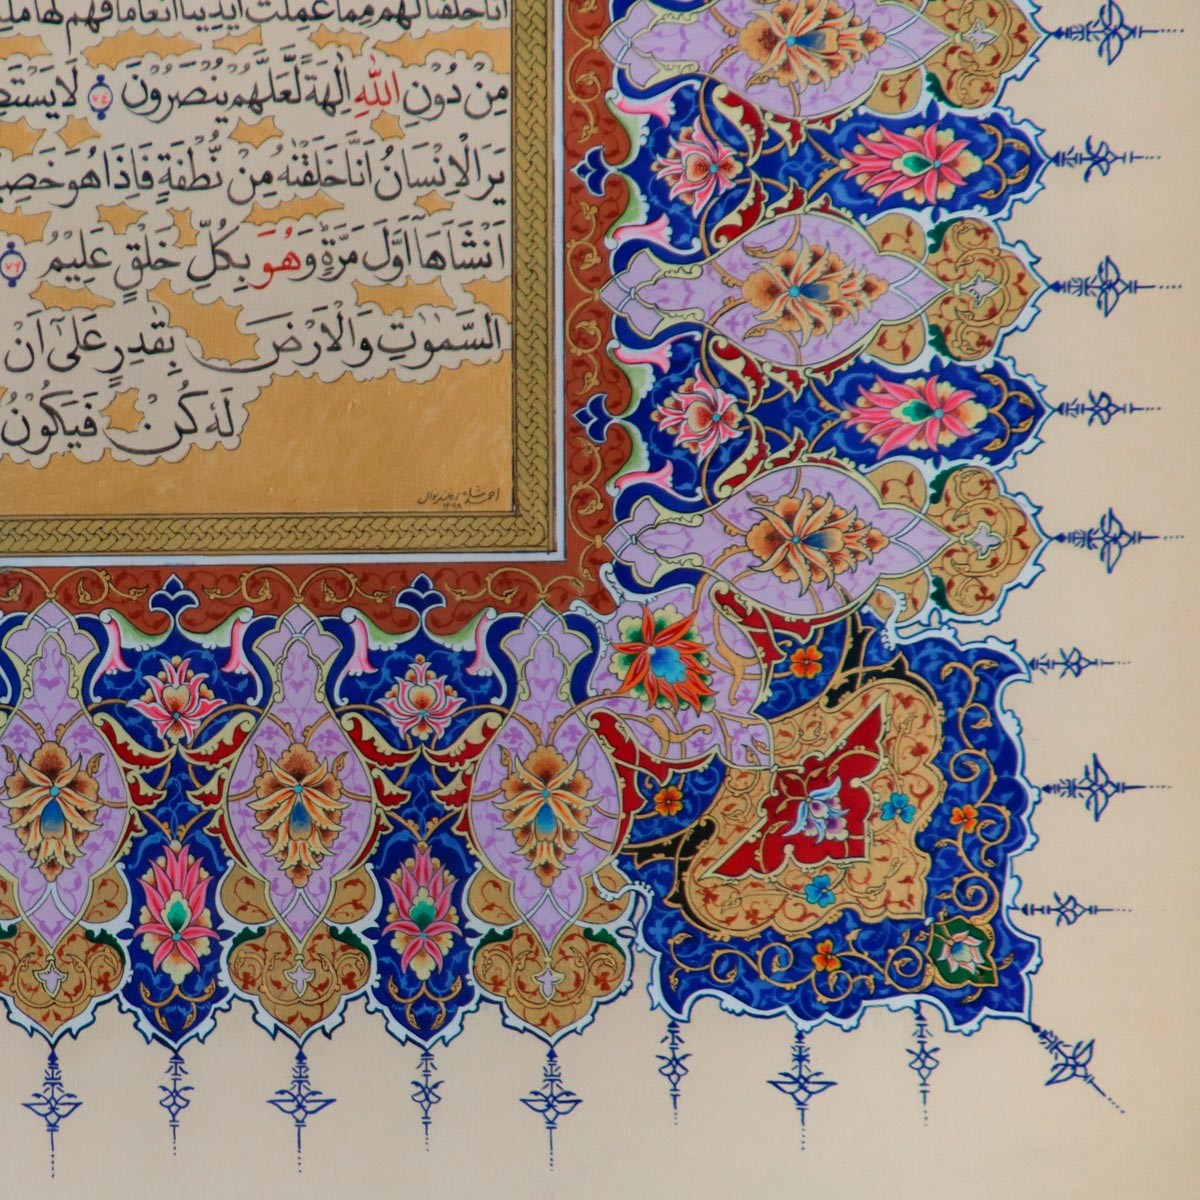 اَنَّا خَلَقْنَا لَهُمْ مِمَّا عَمِلَتْ اَيْدِينَا اَنْعَامًا فَهُمْ لَهَا
مِنْ دُوْنِ اللّٰهِ اٰلِهَةً لَّعَلَّهُمْ يُنْصَرُوْنَ ۷۴ لَا
يَرَ الْاِنْسَانُ اَنَّا خَلَقْنٰهُ مِنْ نُّطْفَةٍ فَاِذَا هُوَ
اَنْشَاَهَآ اَوَّلَ مَرَّةٍ وَهُوَ بِكُلِّ خَلْقٍ عَلِيْمٌ
السَّمٰوٰتِ وَالْاَرْضَ بِقٰدِرٍ عَلٰٓى اَنْ
لَهٗ كُنْ فَيَكُوْنُ